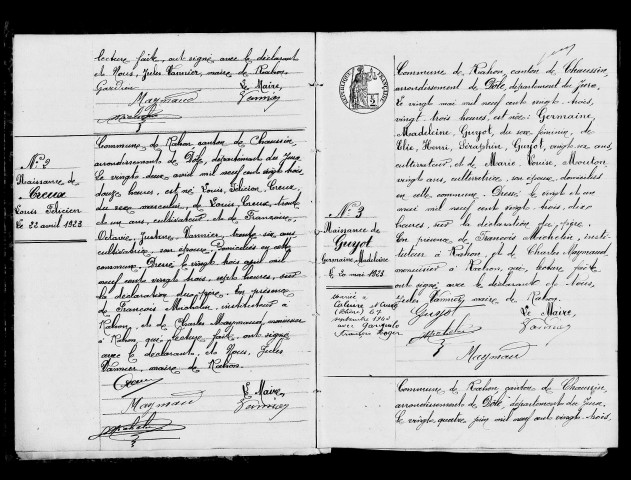 lecture faite, ont signé avec le déclarant
et Nous, Jules Vannier, maire de Rahon.
Le Maire,
Maymaud
Vannier
Michelin
N° 2
Naissance de
Creux
Louis Félicien
Le 22 avril 1923
Commune de Rahon canton de Chaussin
arrondissement de Dôle, département du Jura
Le vingt deux avril mil neuf cent vingt trois
douze heures, est né Louis Félicien Creux,
du sexe masculin, de Louis Creux, trente
et un ans, cultivateur et de Françoise,
Octavie, Justine, Vannier, trente six ans,
cultivatrice, son épouse, domiciliés en cette
commune. Dressé le vingt trois avril mil
neuf cent vingt trois, sept heures, sur
la déclaration du père. En présence
de François Michelin instituteur à
Rahon, et de Charles Maymaud, menuisier
à Rahon qui, lecture faite ont signé
avec le déclarant, et Nous, Jules
Vannier, maire de Rahon.
Creux
Le Maire,
Maymaud
Vannier
Michelin
RÉPUBLIQUE FRANÇAISE
Commune de Rahon, canton de Chaussin,
arrondissement de Dôle, département du Jura,
Le vingt mai mil neuf cent vingt trois,
vingt trois heures, est née : Germaine,
Madeleine, Guyot, du sexe féminin, de
Elie, Henri, Séraphin, Guyot, vingt six ans,
cultivateur et de Marie Louise, Mouton,
vingt ans, cultivatrice, son épouse domiciliés
en cette commune Dressé le vingt et un
mai mil neuf cent vingt trois, dix
heures, sur la déclaration du père.
En présence de François Michelin, insti-
tuteur à Rahon, et de Charles Maymaud,
menuisier à Rahon, qui, lecture faite
ont signé avec le déclarant et Nous,
Jules Vannier, maire de Rahon.
Guyot
Le Maire,
Michelin
Vannier
Maymaud
N° 3
Naissance de
Guyot
Germaine, Madeleine
Le 20 mai 1923
Marié à
Caluire et Cuire
(Rhône) le
septembre
avec
François Roger
Commune de Rahon canton de Chaussin,
arrondissement de Dôle, département du Jura.
Le vingt quatre juin mil neuf cent vingt trois.